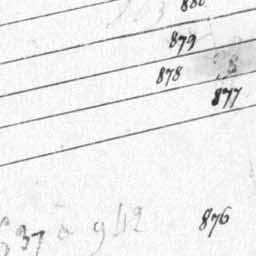 880
879
878
877
876
637 à 942